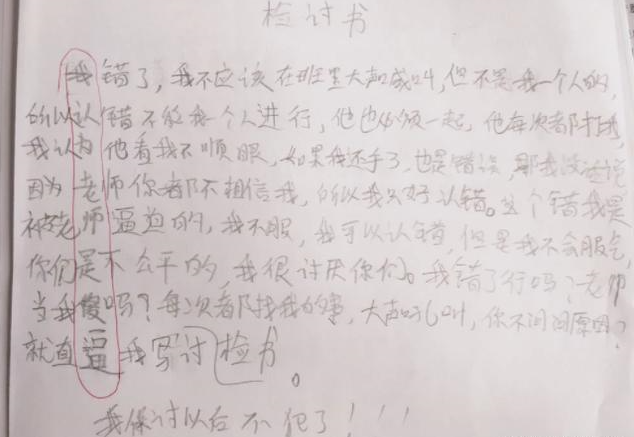 检讨书
我错了，我不应该在班里大声喊叫，但不是我一个人的，
所以认错不能我一个人进行，他也必须一起，他每次都打我，
我认为他看我不顺眼，如果我还手了，也是错误，那我没话说
因为老师你都不相信我，所以我只好认错。这个错我是
被老师逼迫的，我不服，我可以认错，但是我不会服气，
你们是不公平的，我很讨厌你们。我错了行吗？老师
当我傻吗？每次都找我的事，大声吼叫，你不问问原因？
就直逼我写讨检书。
我保讨以后不犯了！！！